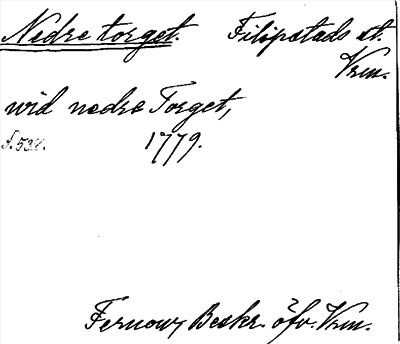 Nedre torget. Filipstads st.
Vrm.
wid nedre Torget,
s. 532. 1779.
Fernow, Beskr. öfv. Vrm.